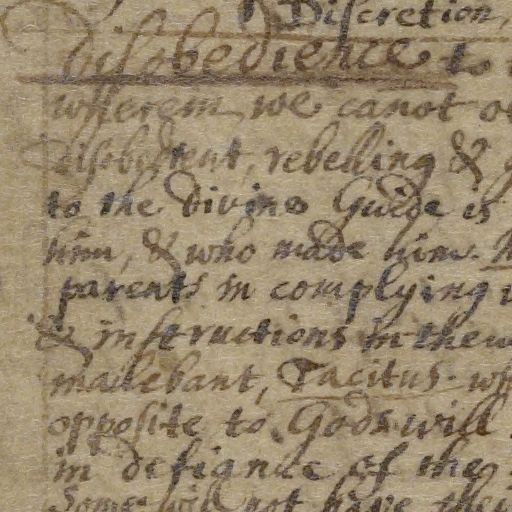 & Discretion,
Disobedience to
wherein we canot o
disobedient, rebelling &
to the divine Guide is
him, & who made him.
parents in complying
& instructions in the w
mallebant, Tacitus. wh
opposite to Gods will
in defiance of the
Some will not have thei